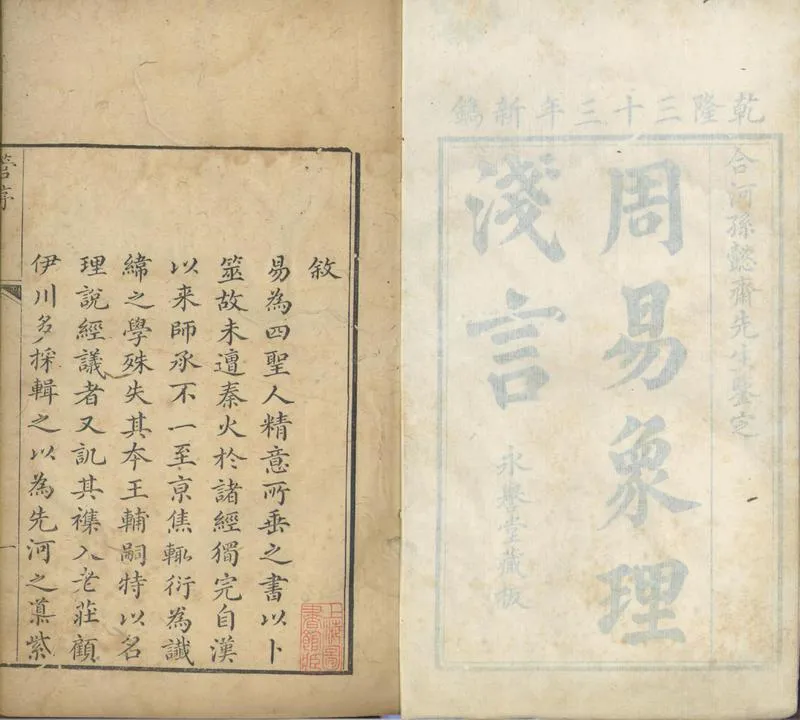 乾隆三十三年新鐫
合河孫懿齋先生鑒定
周易象理
淺言
永譽堂藏板
敘
易為四聖人精意所垂之書以卜
筮故未遭秦火於諸經獨完自漢
以来師承不一至京焦輙衍為讖
緯之學殊失其夲王輔嗣特以名
理說經議者又訊其襍入老莊顧
伊川多採輯之以為先河之導紫
上海圖
書館藏